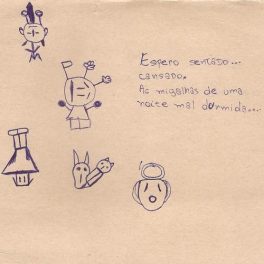 Espero sentado...
cansado.
As migalhas de uma
noite mal dormida...